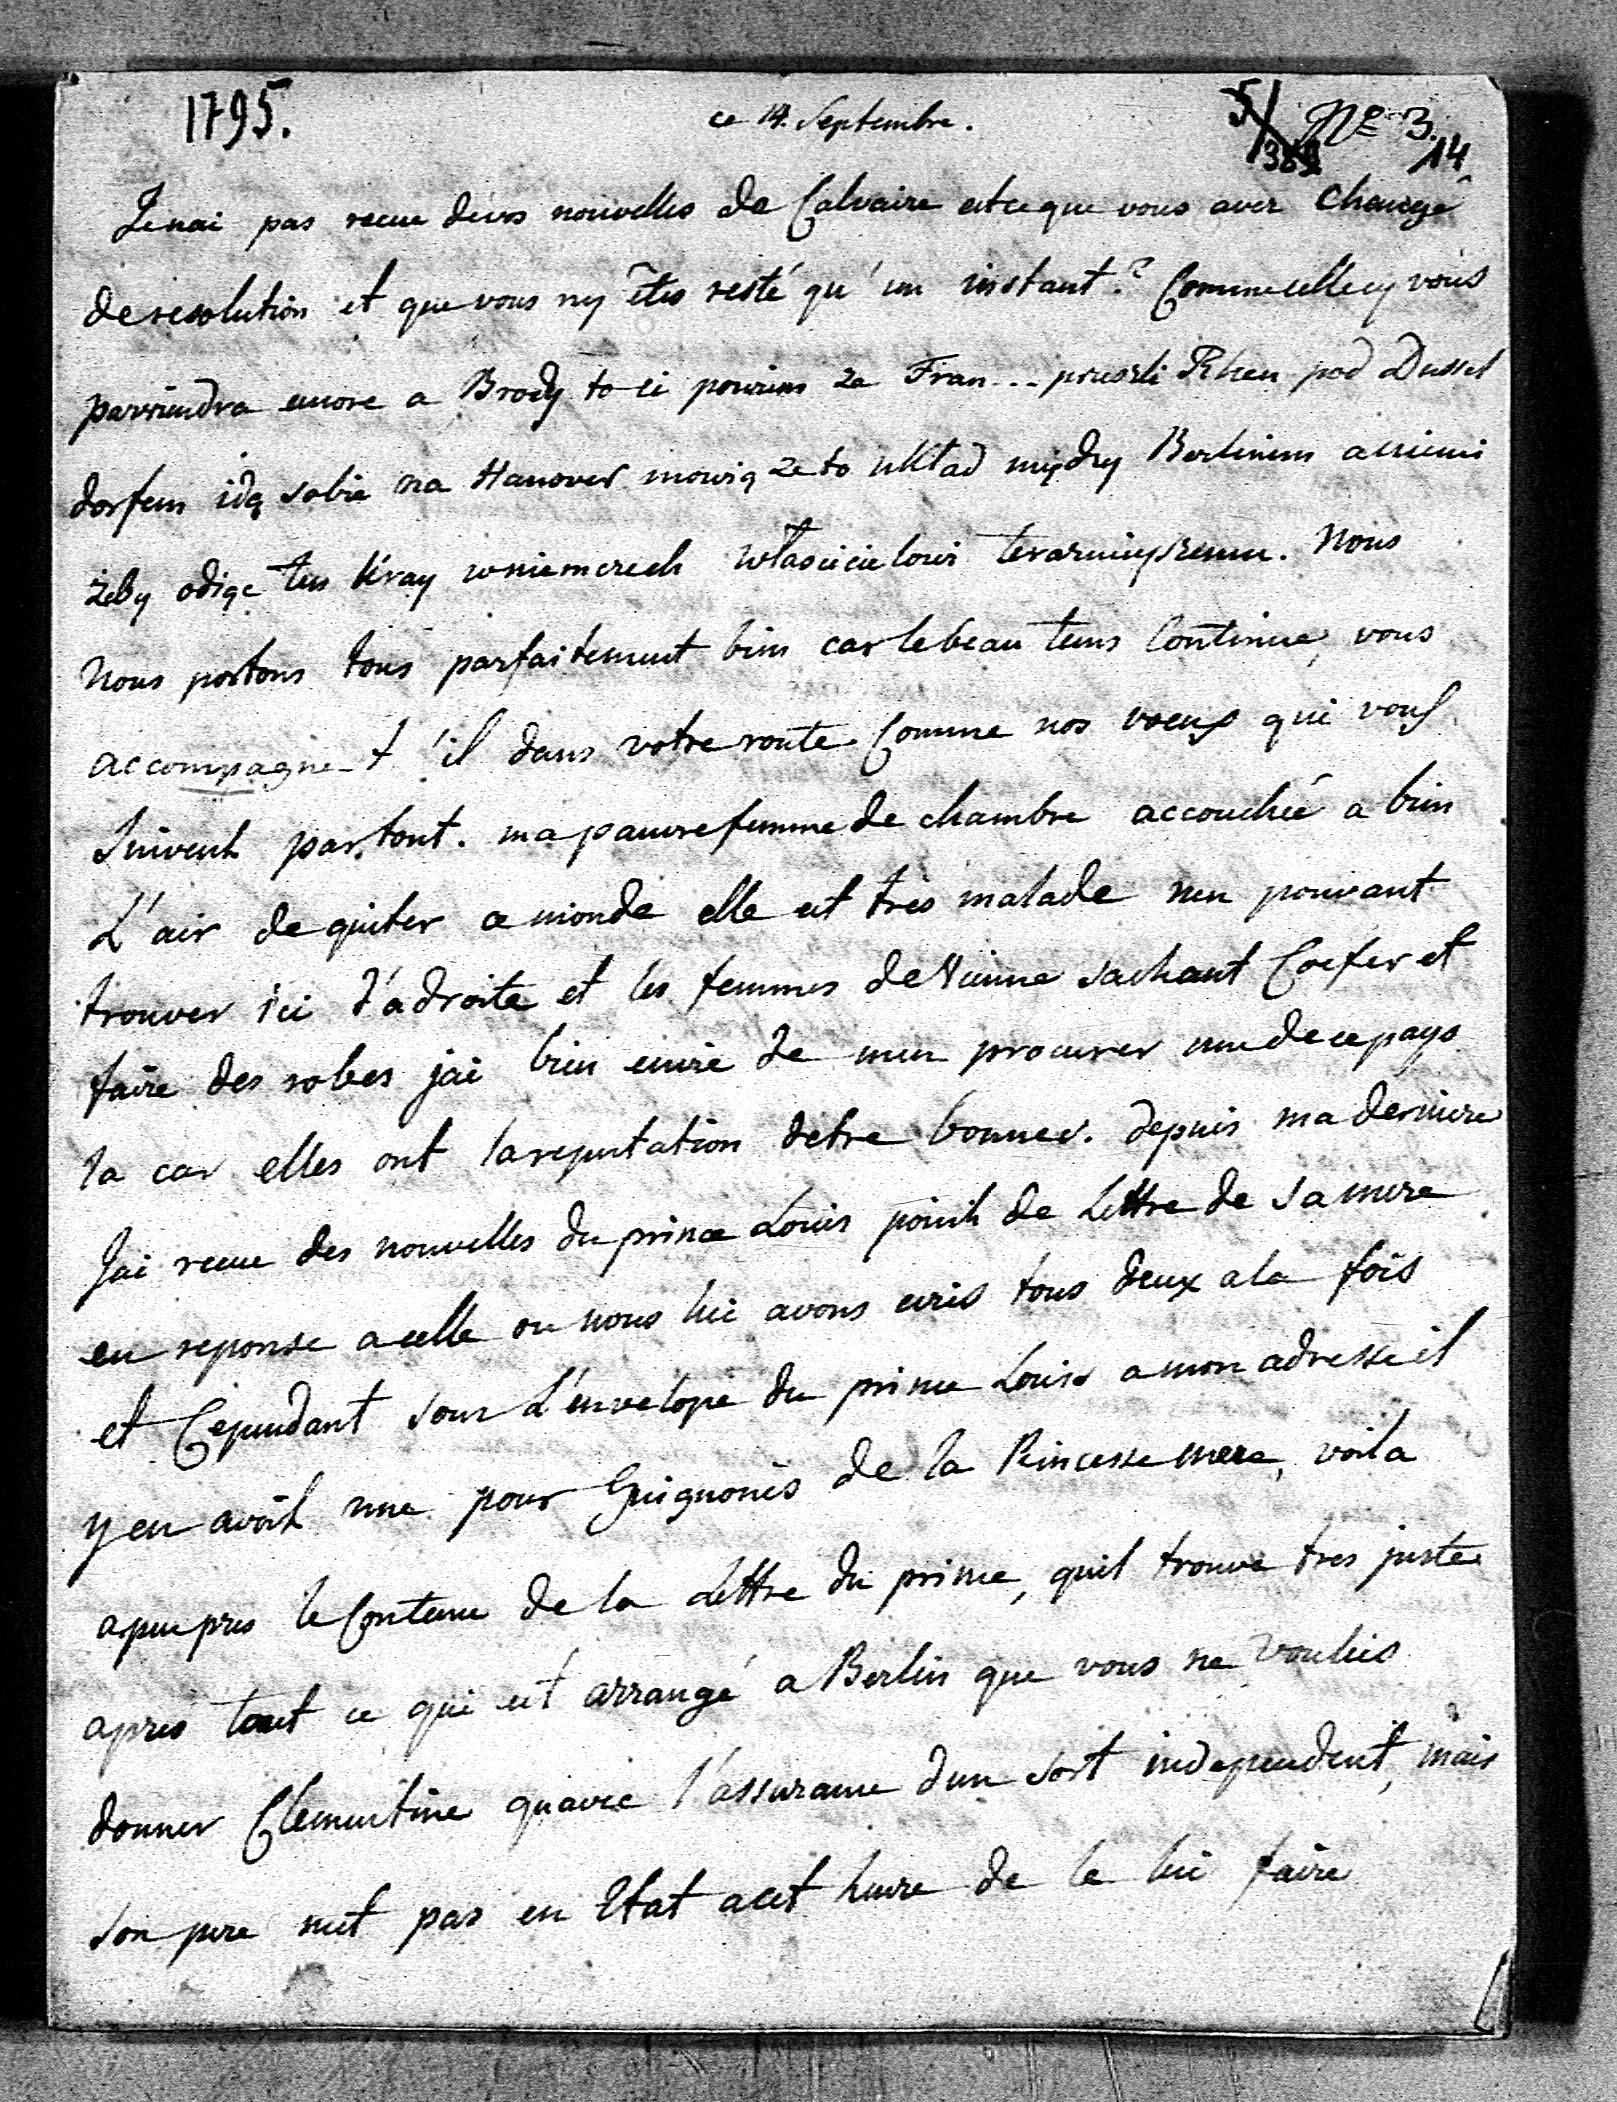 1795.
ce 14. Septembre.
5/389
No 3.
14
Je nai pas recue de vos nouvelles de Calvaire estceque vous avez changé
de resolution et que vous ny êtes resté qu'un instant? Comme cellecy vous
parviendra encore a Brody to ci powiem ze Fran... przeszli Rhen pod Dussel
dorfem idą sobie na Hanover mowią ze to układ między Berlinem a niemi
żeby odiąc ten kray wniemczech własicielowi teraznieyszemu. Nous
nous portons tous parfaitement bien car le beau tems Continue, vous
accompagne-t'il dans votre route Comme nos voeux qui vous
suivent partout. ma pauvre femme de chambre accouchée a bien
L'air de quiter ce monde elle est très malade nen pouvant
trouver ici d'adroite et les femmes de Vienne sachant Coefer et
faire des robes jai bien envie de men procurer une de ce pays
la car elles ont la reputation detre bonnes. depuis ma derniere
Jai recue des nouvelles du prince Louis point de Lettre de sa mere
en reponse a celle ou nous lui avons ecris tous deux a la fois
et Cependant sous L'envelope du prince Louis a mon adresse il
y en avoit une pour Guignonis de la Princesse mere, voila
apeu pres le Contenu de la Lettre du prince, quil trouve tres juste
apres tout ce qui est arrangé a Berlin que vous ne vouliés
donner Clementine quavec l'assurance dun sort independent, mais
son pere nest pas en Etat acet heure de le lui faire